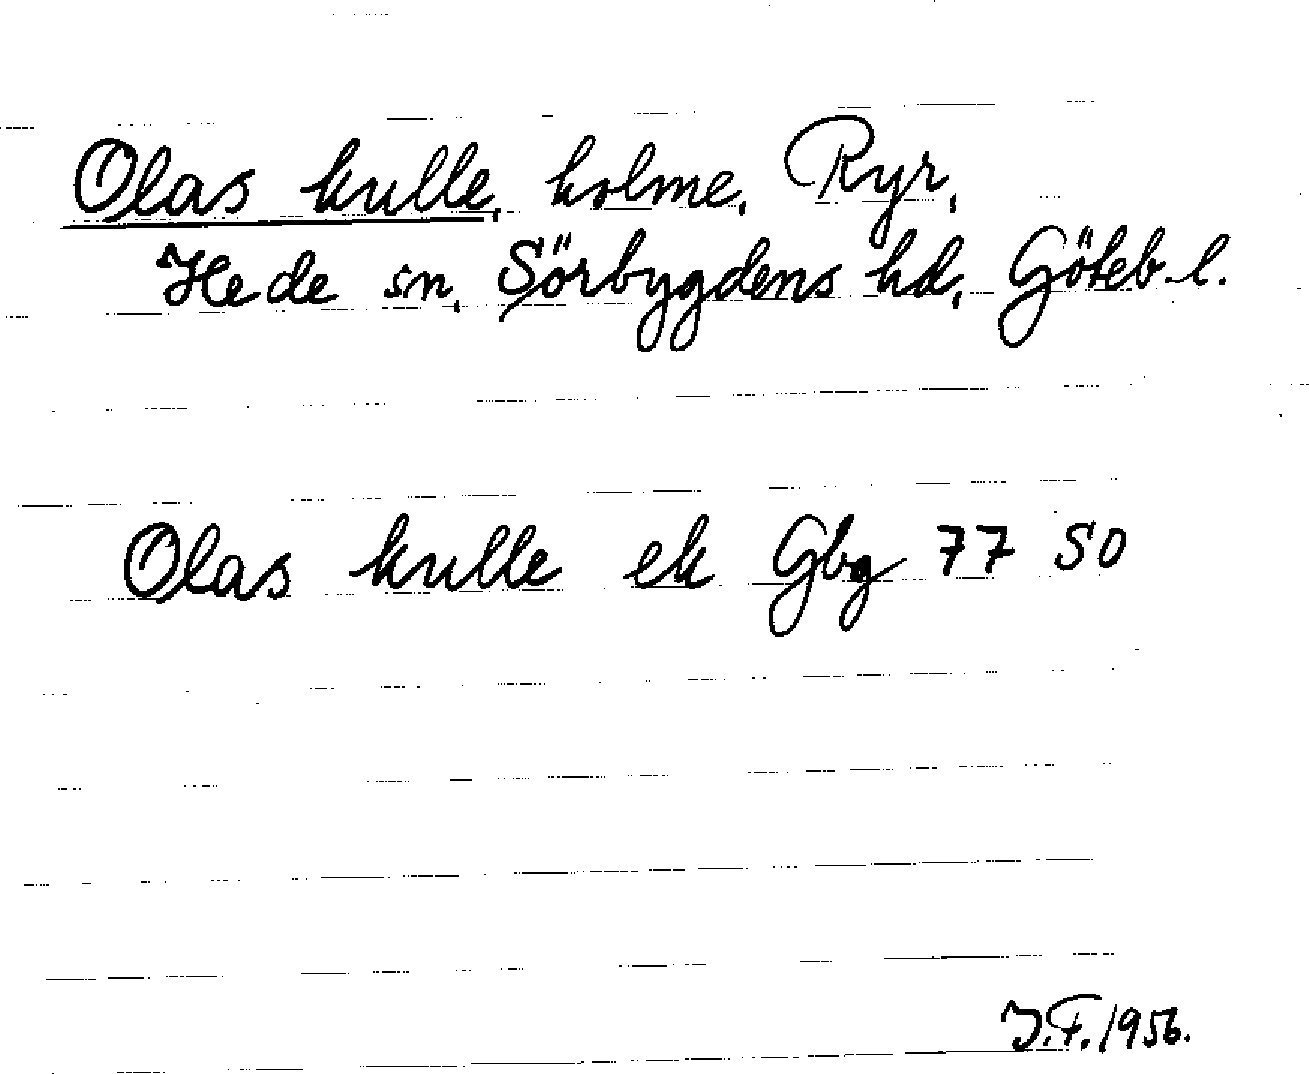 Olas kulle, holme, Ryr,
Hede sn, Sörbygdens hd, Göteb. l.
Olas kulle ek Gbg 77 SO
J.F. 1956.